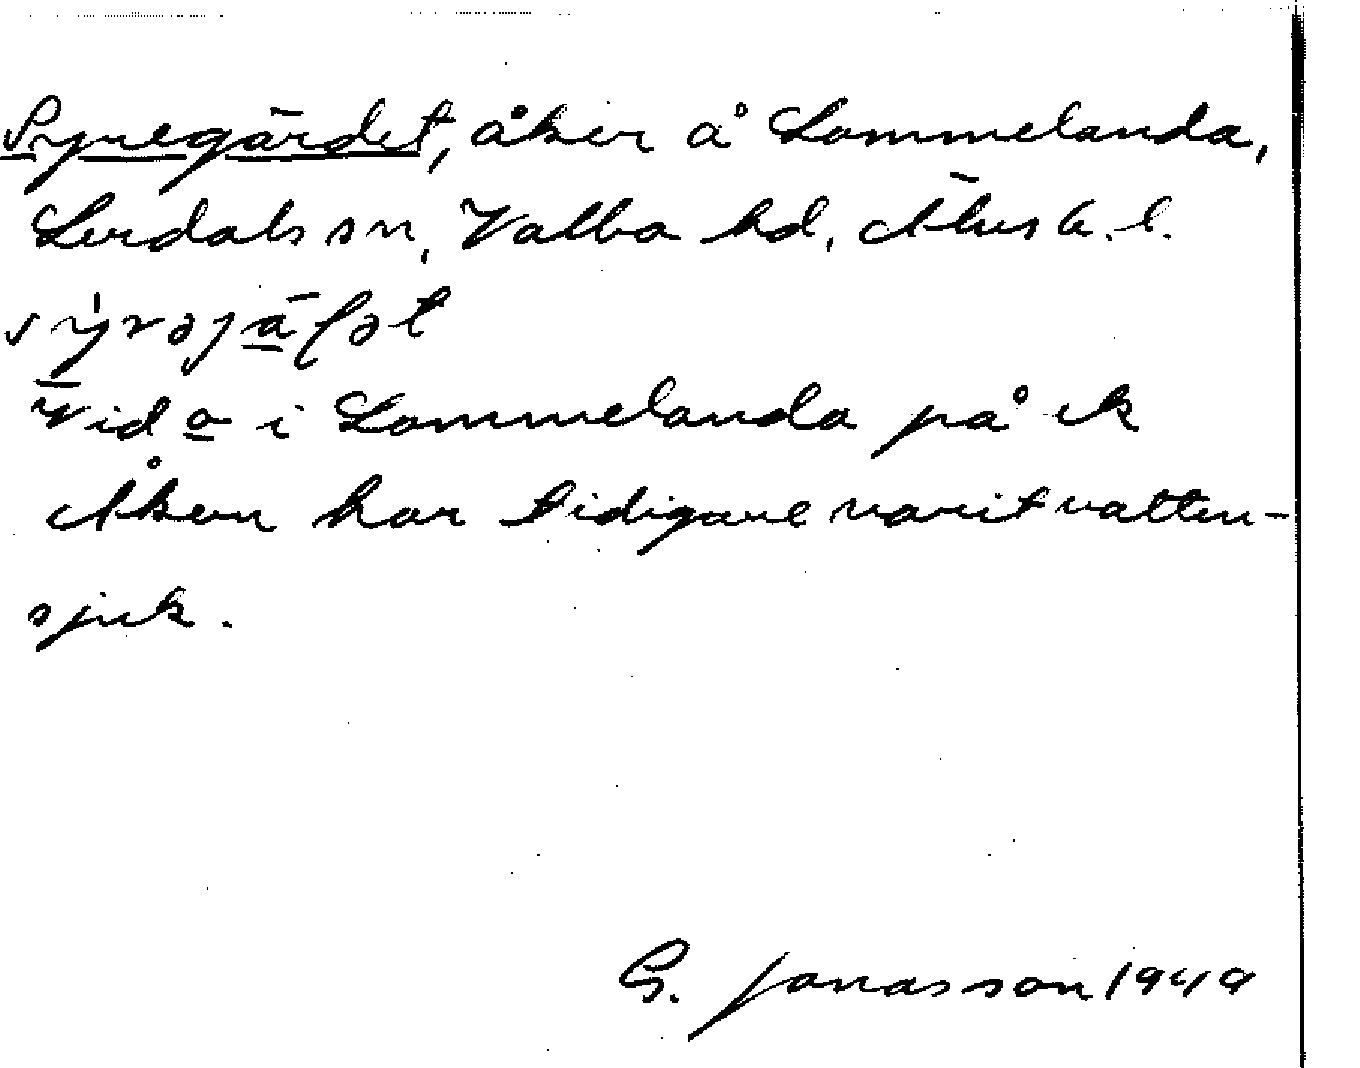 Syregärdet, åker å Lommelanda,
Lerdals sn, Valbo hd, Älvsb. l.
Vid o i Lommelanda på ek
Åkern har tidigare varit vatten-
sjuk.
G. Jonasson 1949